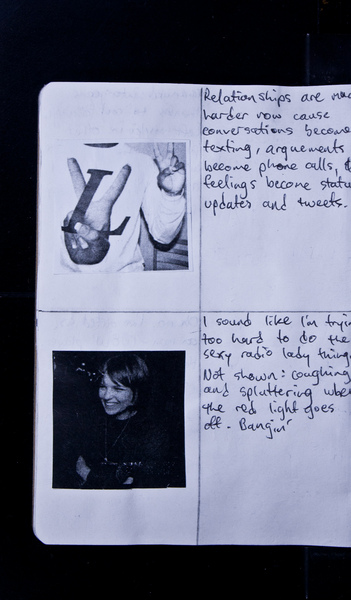 Relationships are
harder now cause
conversations become
texting, arguements
become phone calls, &
feelings become statu
updates and tweets.
L
I sound like I'm tryin
too hard to do the
sexy radio lady thing.
Not shown: coughing
and spluttering when
the red light goes
off. Bangin'